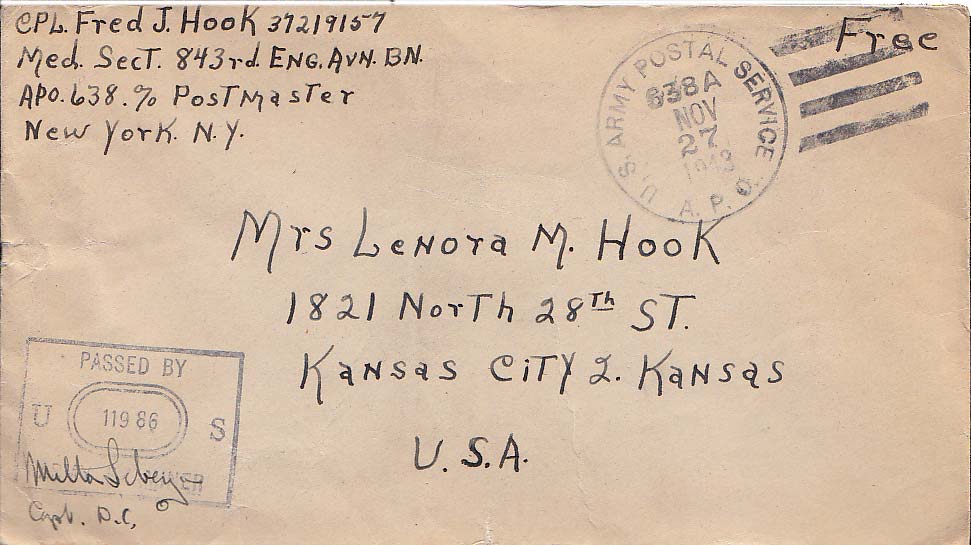 CPL. Fred J. Hook 37219157
Med. Sect. 843rd. Eng. Avn. BN.
APO. 638. % PostMaster
New York. N.Y.
Free
U. S. ARMY POSTAL SERVICE
638A
NOV
27
1943
A. P. O.
Mrs Lenora M. Hook
1821 North 28th ST.
Kansas City 2. Kansas
U.S.A.
PASSED BY
U 11986 S
Capt. D.C,